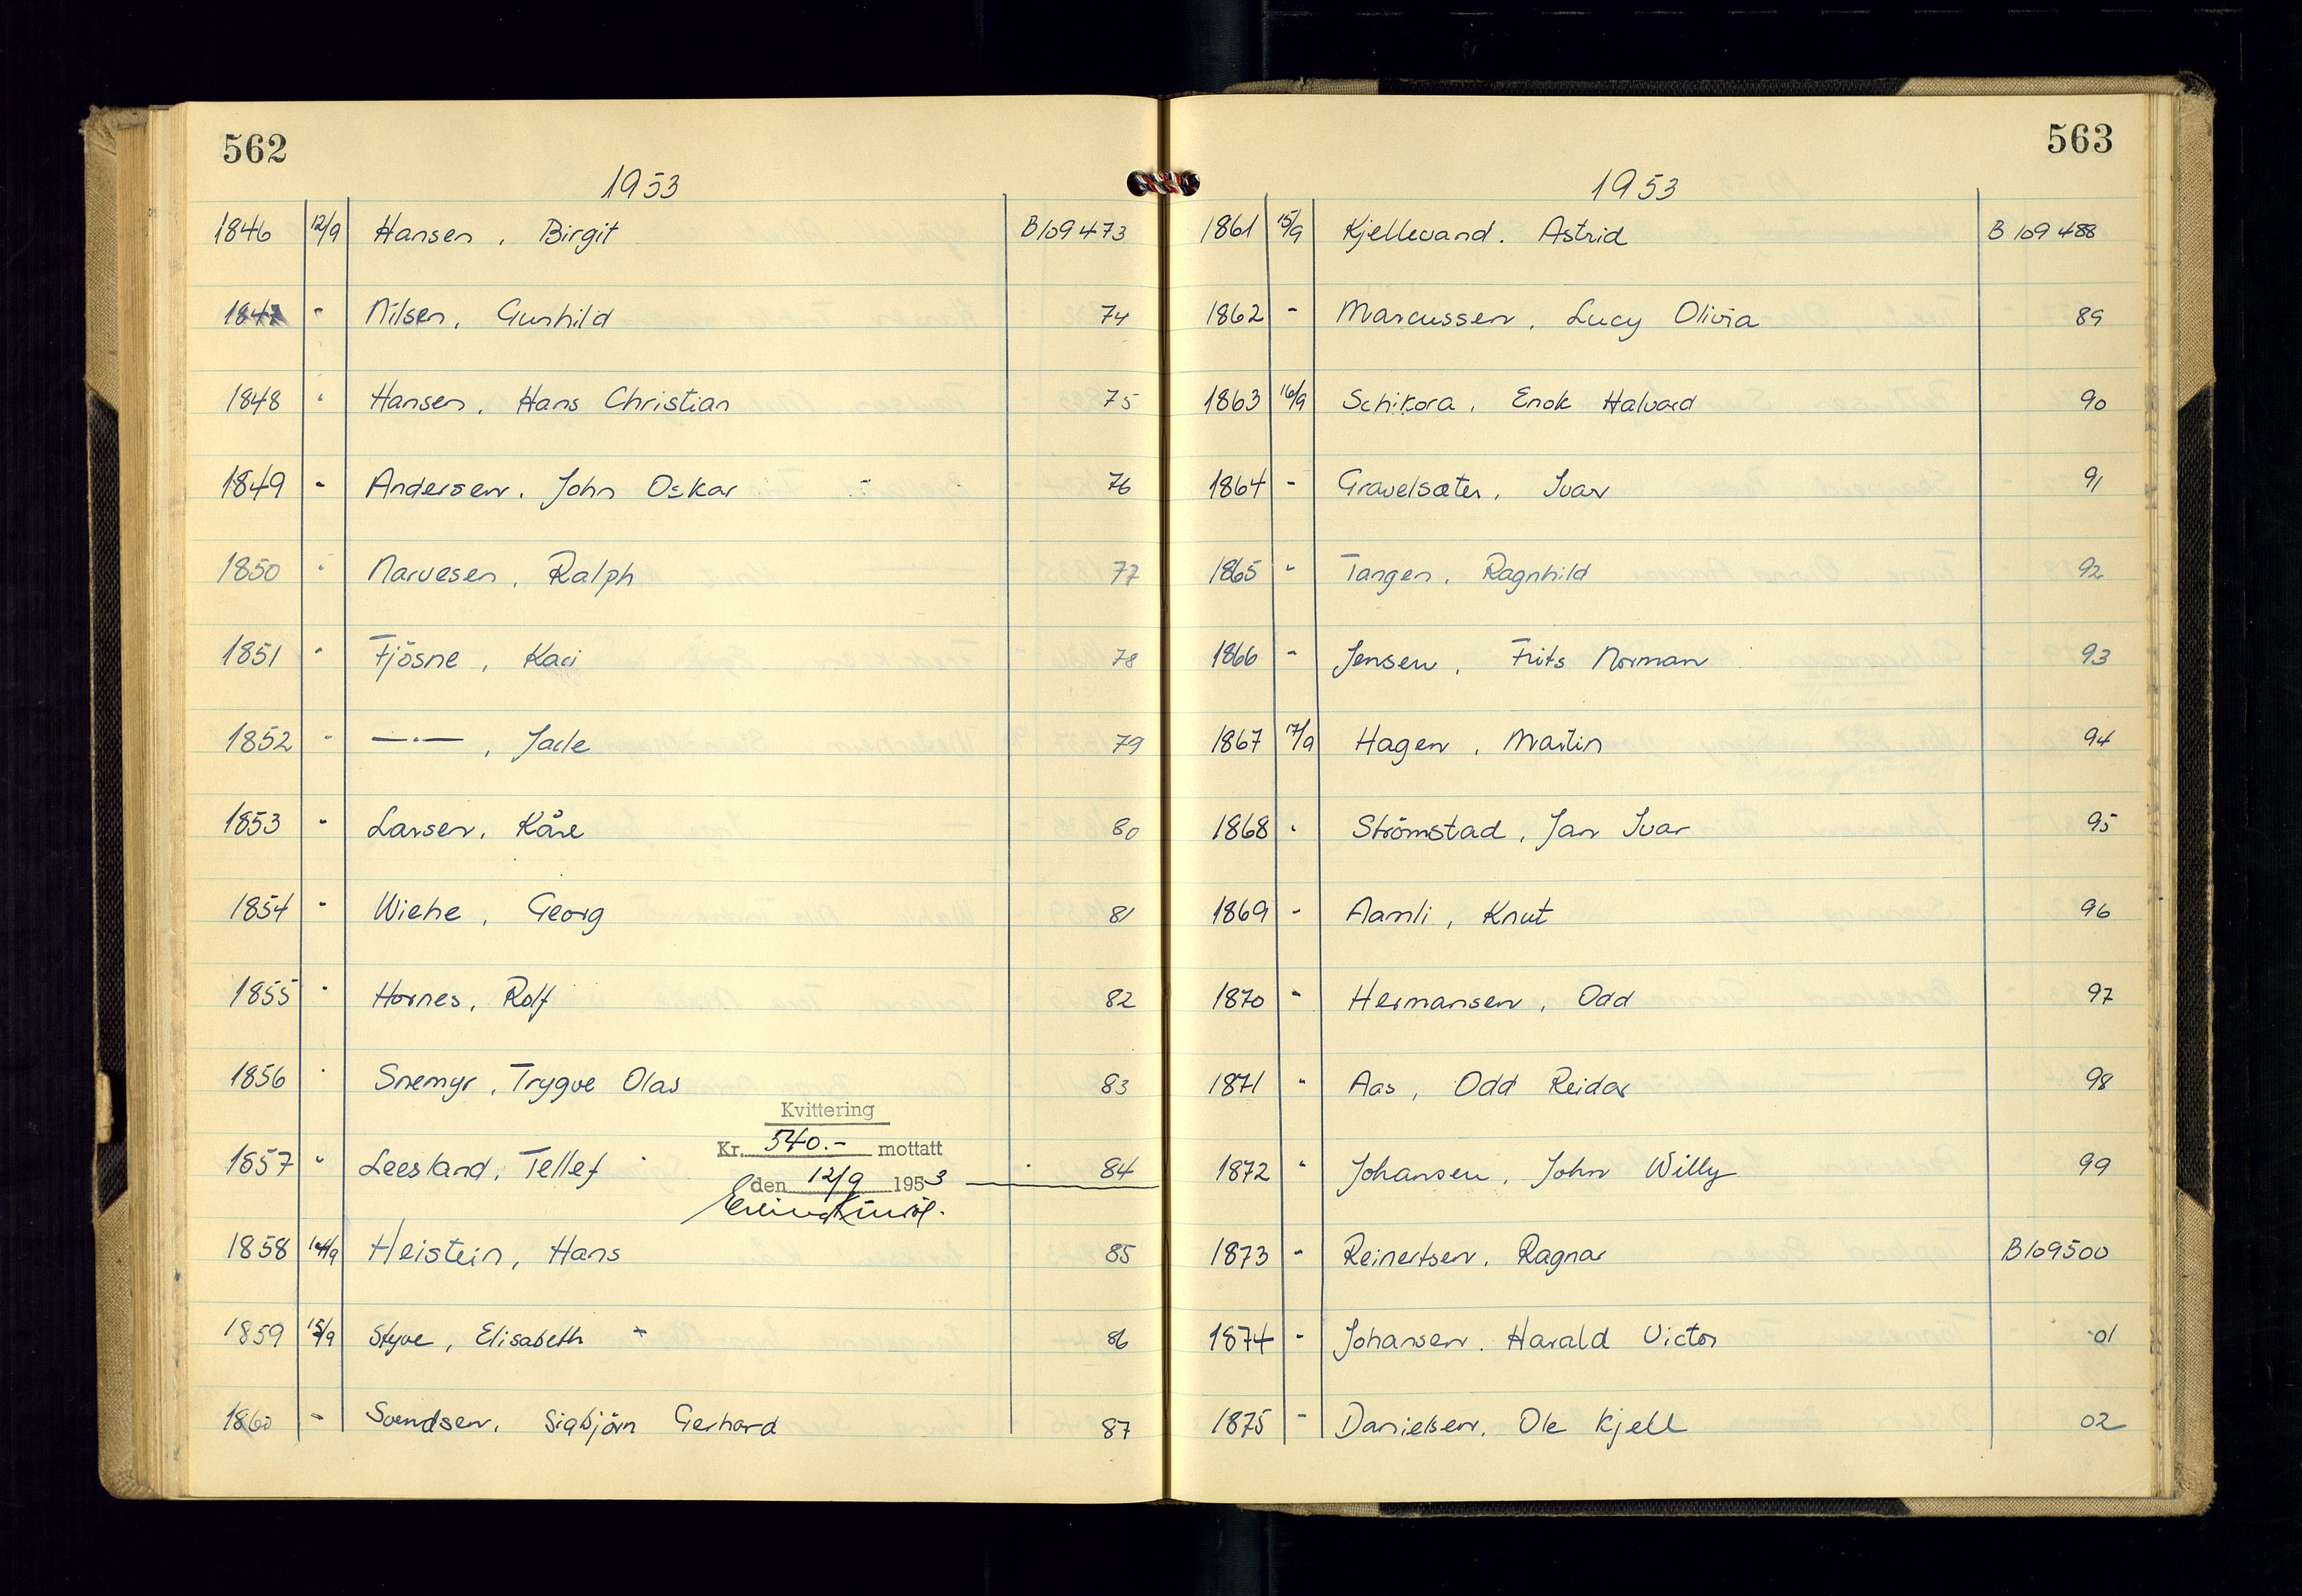 562
1953
1846 12/9 Hansen, Birgit B109473
1847 " Nilsen, Gunhild 74
1848 " Hansen, Hans Christian 75
1849 " Andersen, John Oskar 76
1850 " Narvesen, Ralph 77
1851 " Fjösne, Kari 78
1852 " —"—, Jarle 79
1853 " Larsen, Kåre 80
1854 " Wiehe, Georg 81
1855 " Hornes, Rolf 82
1856 " Snemyr, Trygve Olas 83
Kvittering
Kr. 540.- mottatt
1857 " Leesland, Tellef 84
den 12/9 1953
1858 14/9 Heistein, Hans 85
1859 15/9 Styve, Elisabeth 86
1860 " Svendsen, Sigbjörn Gerhard 87
563
1953
1861 15/9 Kjellevand, Astrid B109488
1862 " Marcussen, Lucy Olivia 89
1863 16/9 Schikora, Enok Halvard 90
1864 " Gravelsæter, Ivar 91
1865 " Tangen, Ragnhild 92
1866 " Jensen, Frits Norman 93
1867 17/9 Hagen, Martin 94
1868 " Strömstad, Jan Ivar 95
1869 " Aamli, Knut 96
1870 " Hermansen, Odd 97
1871 " Aas, Odd Reidar 98
1872 " Johansen, John Willy 99
1873 " Reinertsen, Ragnar B109500
1874 " Johansen, Harald Victor 01
1875 " Danielsen, Ole Kjell 02